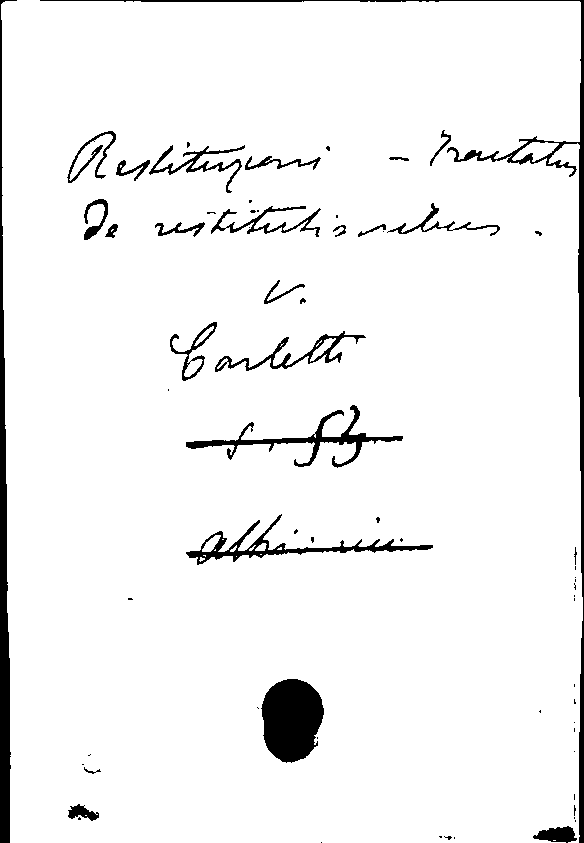 Restituzioni - Tractatus
De restitutionibus.
v.
Carletti